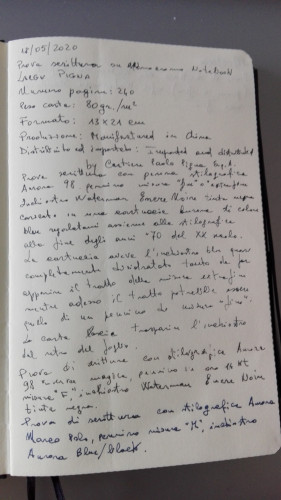 18/05/2020
Prova scrittura su Notebook
PIGNA
Numero pagine: 240
Peso carta: 80 gr/m²
Formato: 13 x 21 cm
Produzione: Manifactured in China
Distribuito ed importato: Imported and distributed
by Cartiere Paolo Pigna S.p.A.
Prova scrittura con penna stilografica
Aurora 98, pennino misura "fine" o
Inchiostro Waterman Encre Noire tinta nera
caricato in una cartuccia Aurora di colore
blu regalatami assieme alla stilografica
alla fine degli anni '70 del XX secolo.
La cartuccia aveva l'inchiostro blu quasi
completamente disidratato tanto da far
apparire il tratto della misura extrafine
mentre adesso il tratto potrebbe essere
quello di un pennino di misura "fine".
La carta lascia trasparire l'inchiostro
del retro del foglio.
Prova di scrittura con stilografica Aurora
98 nera, pennino in oro 14 Kt
misura "F", inchiostro Waterman Encre Noire
tinta negra.
Prova di scrittura con stilografica Aurora
Marco Polo, pennino misura "M", inchiostro
Aurora Blue/black.